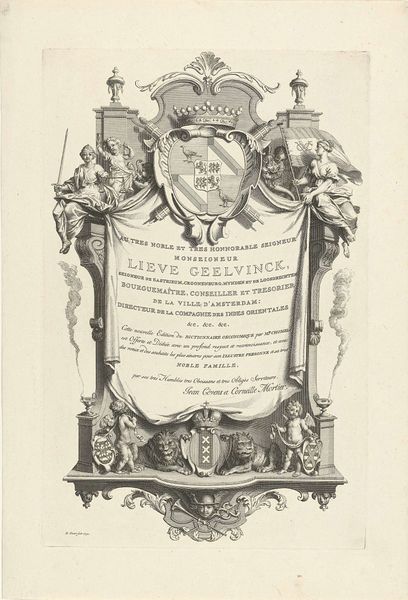 AU TRES NOBLE ET TRES HONNORABLE SEIGNEUR
MONSEIGNEUR
LIEVE GEELVINCK,
SEIGNEUR DE CASTRICUM, CROONENBURG, MYNDEN ET DE LOOSDRECHTEN
BOURGUEMAÎTRE, CONSEILLER ET TRESORIER
DE LA VILLE D'AMSTERDAM;
DIRECTEUR DE LA COMPAGNIE DES INDES ORIENTALES
&c. &c. &c.
Cette nouvelle Edition du DICTIONNAIRE OECONOMIQUE par Mr. CHOMEL
est Offerte et Dediée avec un profond respect et reconnoissance, et avec
des voeux et des souhaits les plus sinceres pour son ILLUSTRE PERSONNE et sa tres
NOBLE FAMILLE,
par ses tres Humbles tres Obeissans et tres Obligés Serviteurs
Jean Covens et Corneille Mortier.